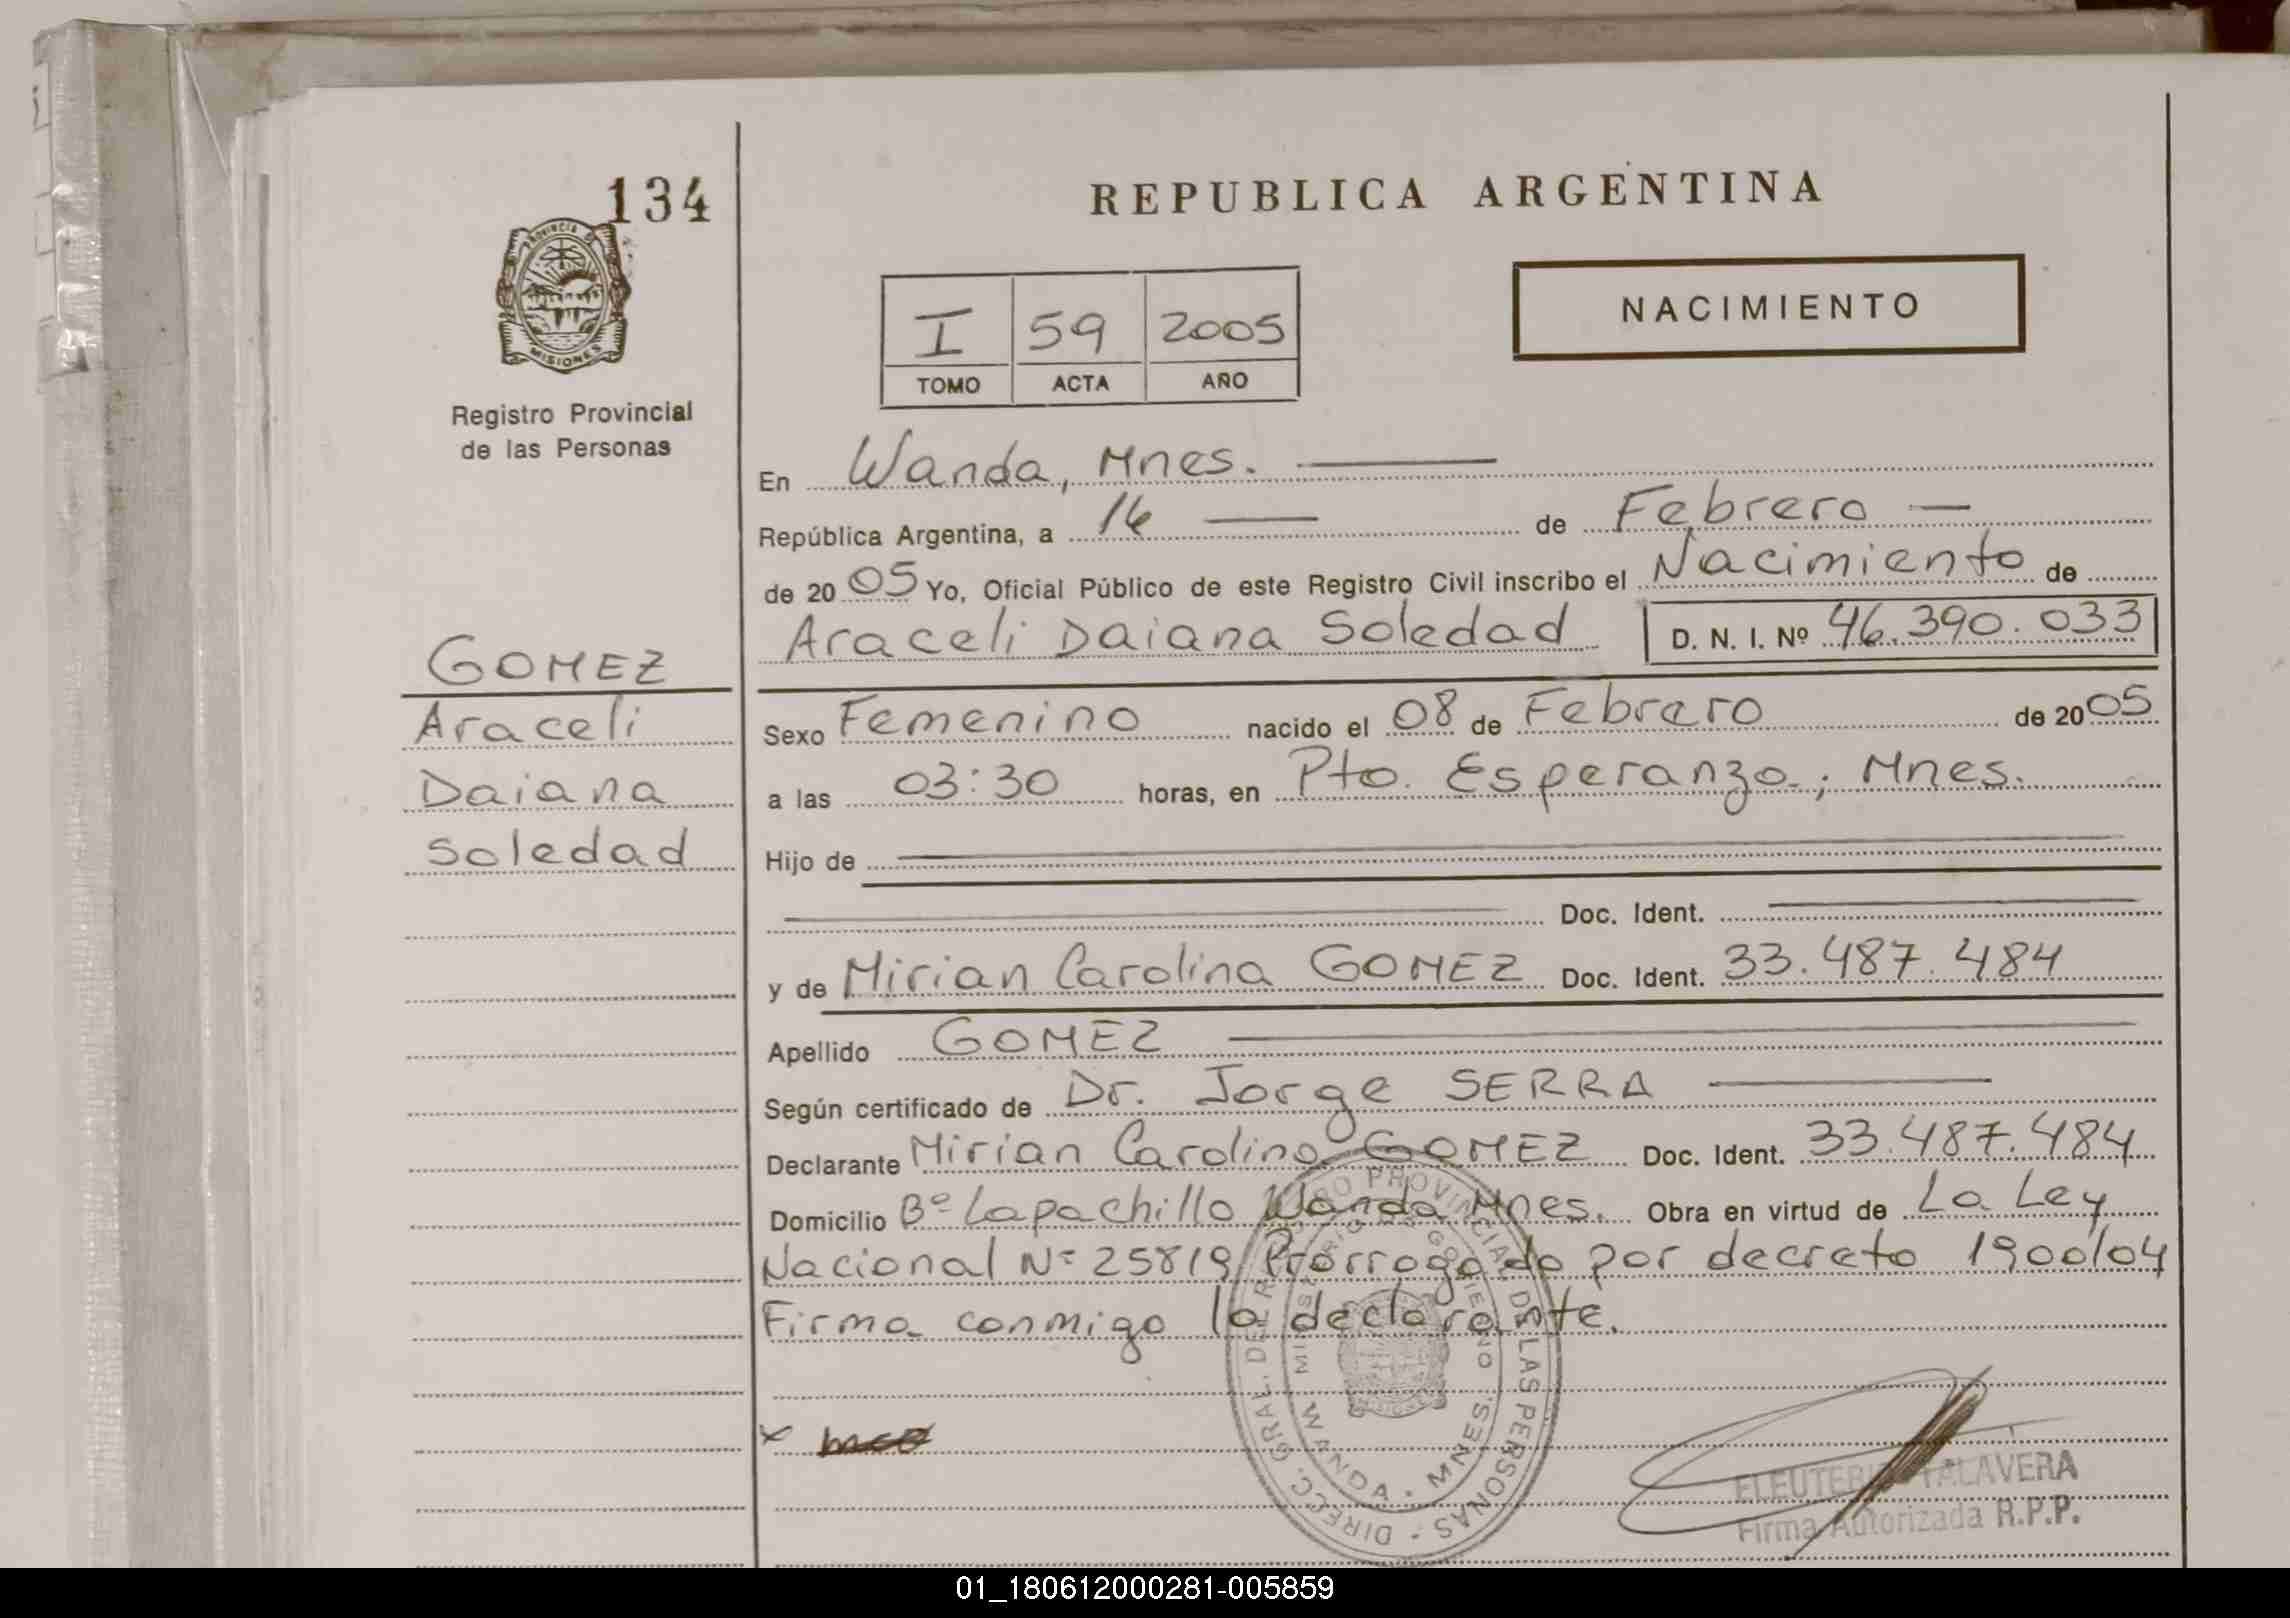 134
PROVINCIA DE
MISIONES
Registro Provincial
de las Personas
GOMEZ
Araceli
Daiana
Soledad
REPUBLICA ARGENTINA
I 59 2005
TOMO ACTA AÑO
NACIMIENTO
En Wanda, Mnes.
República Argentina, a 16 de Febrero
de 2005 Yo, Oficial Público de este Registro Civil inscribo el Nacimiento de
Araceli Daiana Soledad D. N. I. Nº 46.390.033
Sexo Femenino nacido el 08 de Febrero de 2005
a las 03:30 horas, en Pto. Esperanza, Mnes.
Hijo de
Doc. Ident.
y de Mirian Carolina GOMEZ Doc. Ident. 33.487.484
Apellido GOMEZ
Según certificado de Dr. Jorge SERRA
Declarante Mirian Carolina GOMEZ Doc. Ident. 33.487.484
Domicilio Bº Lapachillo Wanda Mnes. Obra en virtud de La Ley
Nacional Nº 25819 Prorrogado por decreto 1900/04
Firma conmigo la declarante.
DIRECC. GRAL. DEL REGISTRO PROVINCIAL DE LAS PERSONAS
MINISTERIO DE GOBIERNO
WANDA - MNES.
x
ELEUTERIO TALAVERA
Firma Autorizada R.P.P.
01_180612000281-005859